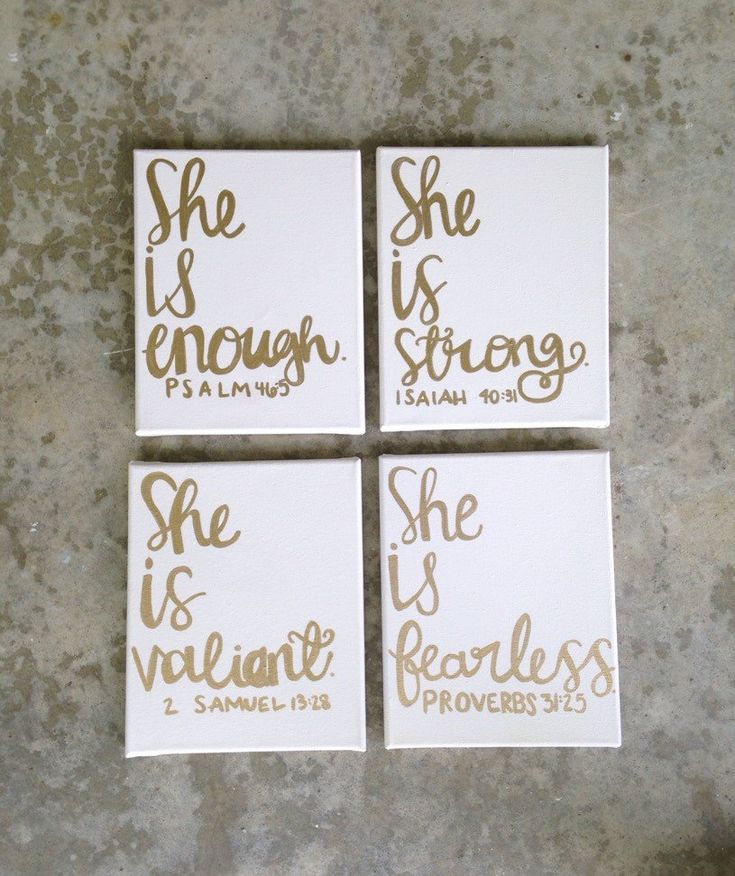 She
is
enough.
PSALM 46:5
She
is
strong.
ISAIAH 40:31
She
is
valiant.
2 SAMUEL 13:28
She
is
fearless.
PROVERBS 31:25